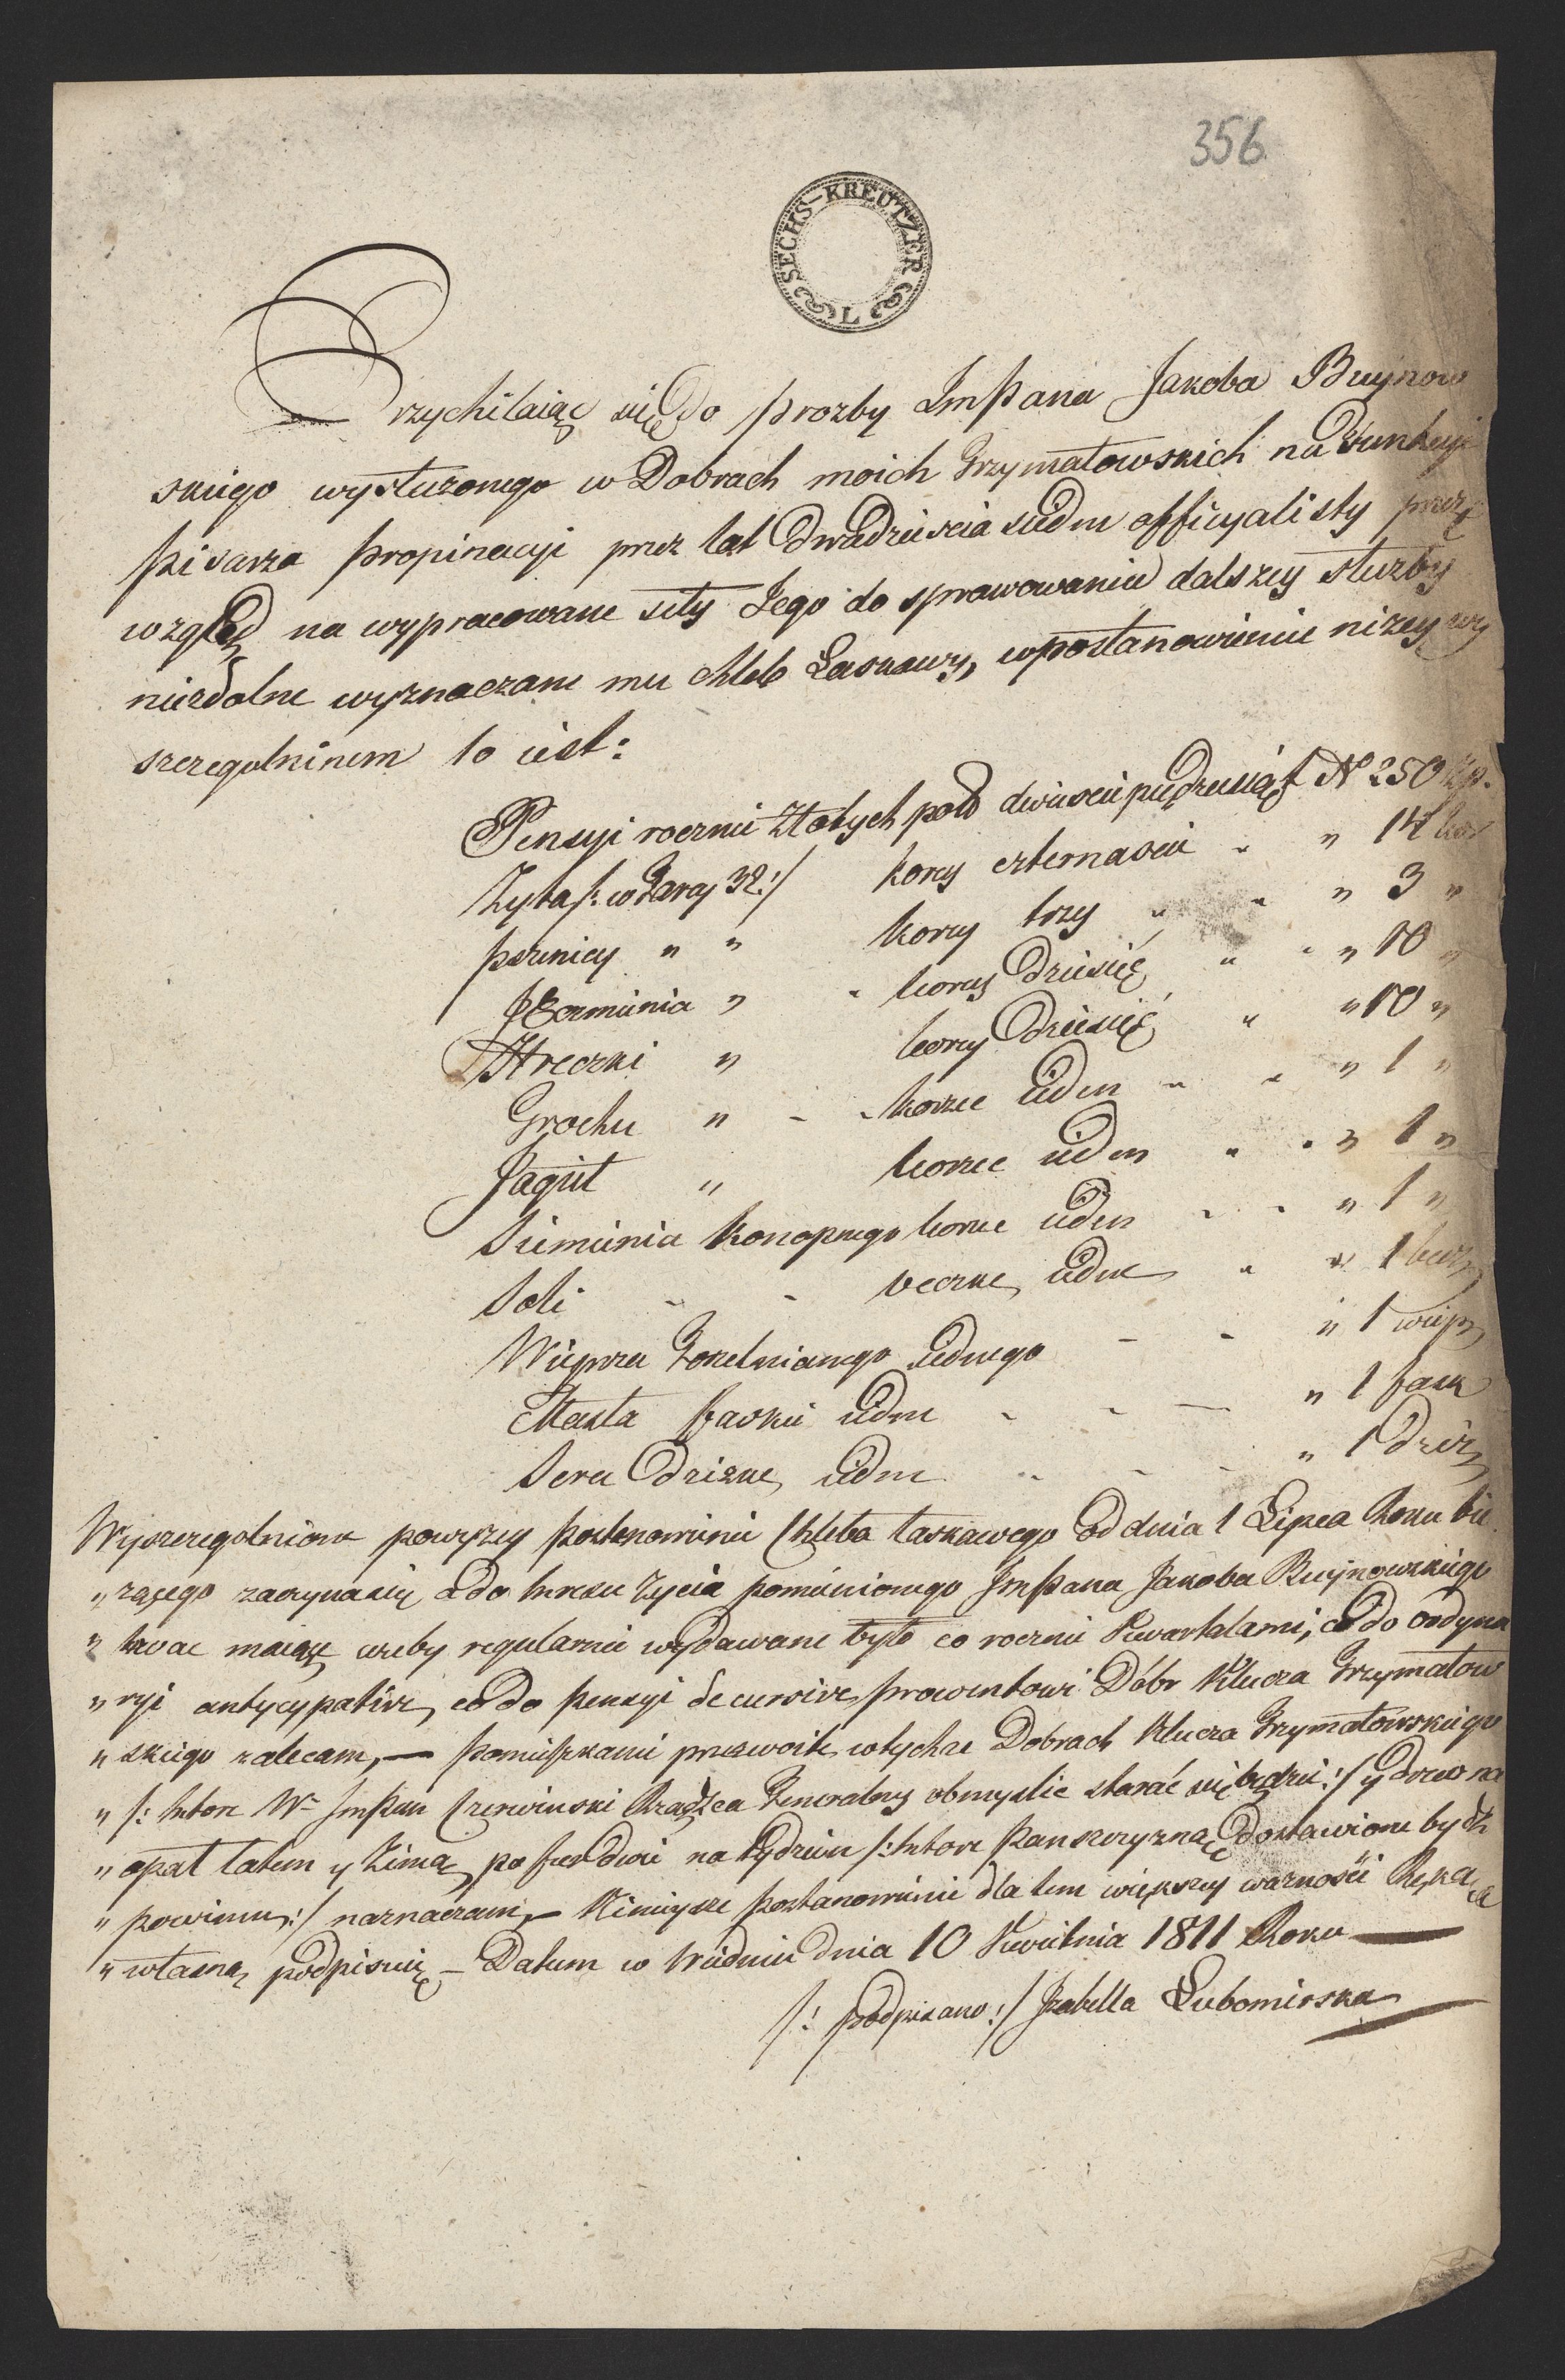 356
SECHS-KREUTZER
L
Przychilaiąc się do prozby ImPana Jakoba Buynow
skiego wysłużonego w Dobrach moich Grzymałowskich na Funkcyi
Pisarza Propinacyi przez lat Dwadziescia siedm officyalisty przez
wzgląd na wypracowane siły Jego do sprawowania dalszey służby
niezdolne wyznaczam mu Chleb Łaskawy, w postanowieniu nizey wy
szczegolninem to iest:
Pensyi rocznie Złotych pols dwiescie pięcdziesiąt N 250 zp.
Zyta /: w Garcy 32 :/ korcy czternascie " " 14 kor
pszenicy " " korcy trzy " " " 3 "
Jęczmienia " " korcy Dziesięć " " " 10 "
Hreczki " korcy Dziesięć " " 10 "
Grochu " - - korzec ieden " " " 1 "
Jagieł " korzec ieden " " " 1 "
Siemienia Konopnego korzec ieden - - " 1 "
Soli - - beczkę iedne " " 1 becz
Wieprza Kordnianego iednego - - " 1 wiep
Masła faskie iedne - - — " 1 fask
Sera Dziżkę iedne - - - " 1 Dzież
Wyszczegolnione powyzey postanowienie Chleba łaskawego od dnia 1 Lipca Roku bie
"żącego zaczynasię a do kresu życia pomienionego ImPana Jakoba Buynowskiego
" trwac maiące, ażeby regularnie wydawane było co rocznie Kwartałami; co do ordyna
"ryi antycypative, co do pensyi decursive, prowentowi Dóbr Klucza Grzymałow
"skiego zalecam, — pomieszkanie przyzwoite w tychże Dobrach Klucza Grzymałowskiego
" /: ktore W ImPan Czerwinski Rządzca Generalny obmyslic starać się będzie :/ y drzewo na
" opał latem y Zimą po fur dwie na tydzien /: ktore Panszczyzną dostawione bydź
" powinno :/ naznaczam, — Ninieysze postanowienie dla tem większey ważności Ręką
" własną podpisuię — Datum w Wiedniu dnia 10 Kwietnia 1811 Roku —
/: podpisano :/ Izabella Lubomirska